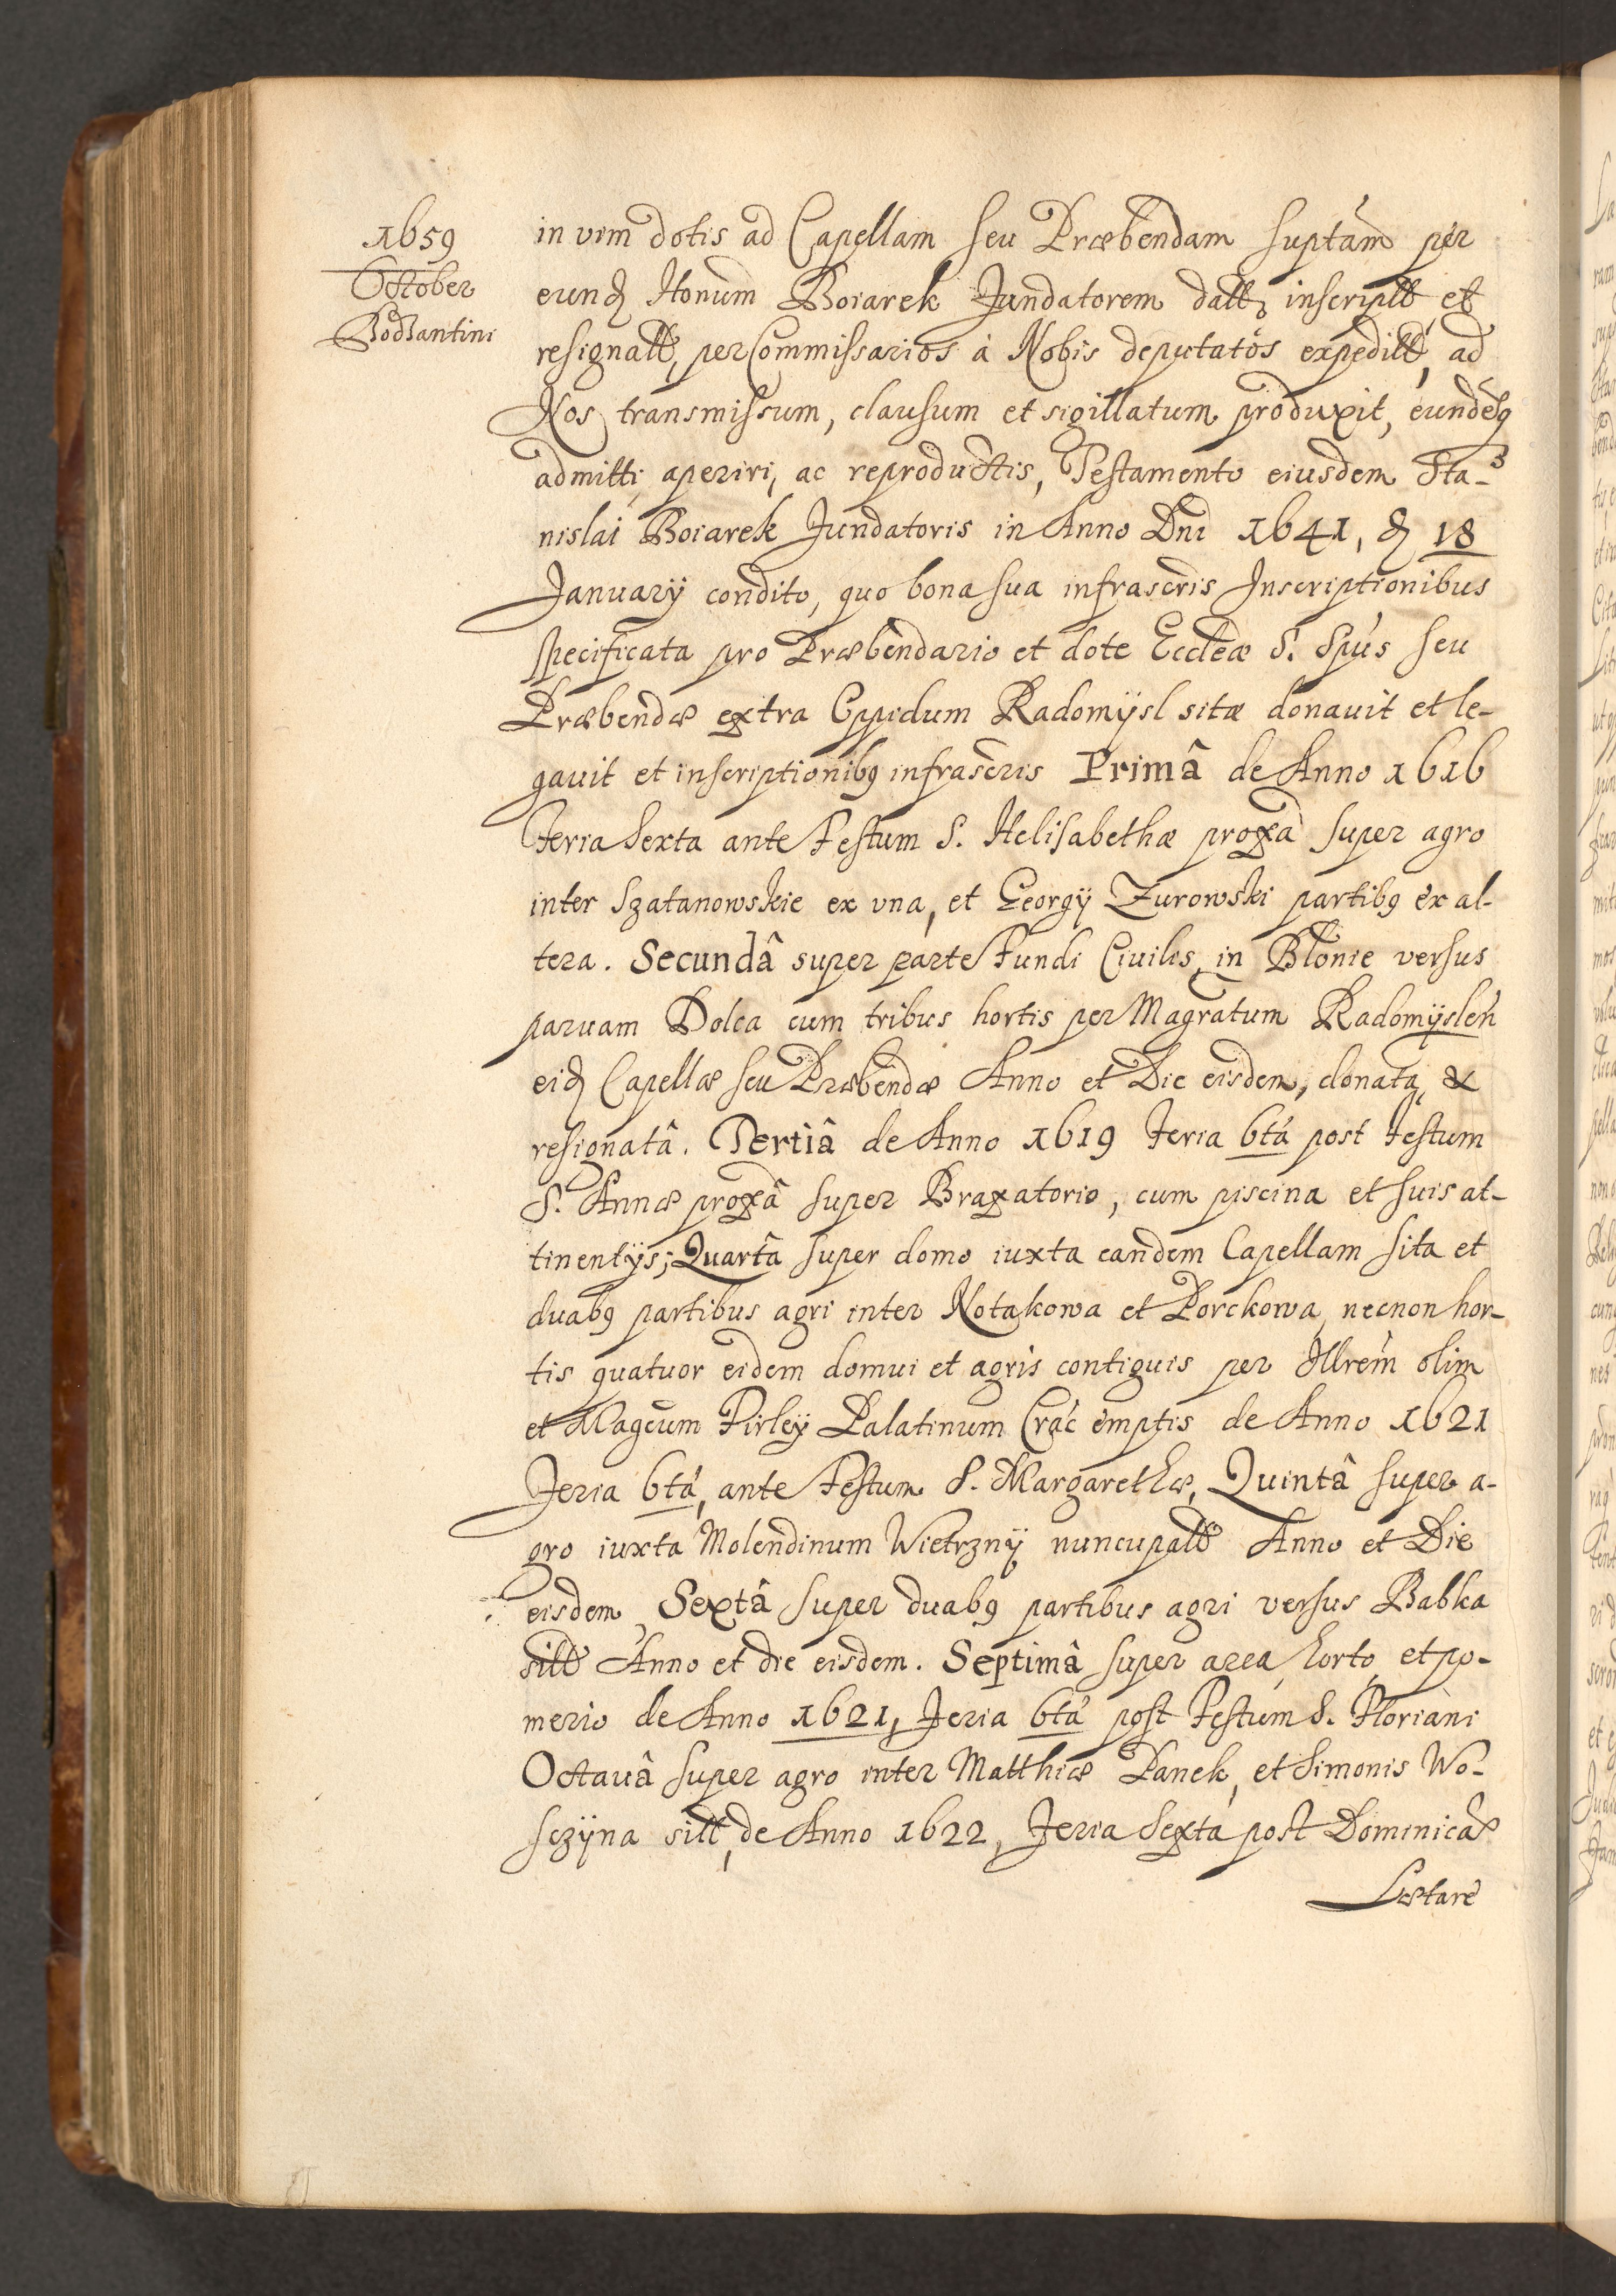 1659
October
Bodzantini
in vim dotis ad Capellam seu Præbendam suptam per
eund Honum Boiarek Fundatorem datt, inscriptt et
resignatt, per Commissarios à Nobis deputatos expeditt, ad
Nos transmissum, clausum et sigillatum produxit, eundeq
admitti, aperiri, ac reproductis, Testamento eiusdem Sta-
nislai Boiarek Fundatoris in Anno Dni 1641, d 18
January condito, quo bona sua infrascris Inscriptionibus
specificata pro Præbendario et dote Eccleæ S. Spus seu
Præbendæ extra Oppidum Radomÿsl sitæ donauit et le-
gauit et inscriptionibq infrascris Primâ de Anno 1616
Feria Sexta ante Festum S. Helisabethæ proxa super agro
inter Szatanowskie ex vna, et Georgÿ Zurowski partibq ex al-
tera. Secundâ super parte Fundi Ciuilis in Blonie versus
paruam Dolca cum tribus hortis per Magratum Radomÿslen
eid Capellæ seu Præbendæ Anno et Die eisdem, donata &
resignatâ. Tertiâ de Anno 1619 Feria 6tâ post Festum
S. Annæ proxâ super Braxatorio, cum piscina et suis at-
tinentÿs; Quartâ super domo iuxta eandem Capellam sita et
duabq partibus agri inter Notakowa et Porckowa, necnon hor-
tis quatuor eidem domui et agris contiguis per Illrem olim
et Magcum Firleÿ Palatinum Crac emptis de Anno 1621
Feria 6tâ, ante Festum S. Margarethæ, Quintâ super a-
gro iuxta Molendinum Wietrznÿ nuncupatt Anno et Die
eisdem, Sextâ super duabq partibus agri versus Babka
sitt Anno et die eisdem. Septimâ super area, horto, et po-
merio de Anno 1621, Feria 6tâ post Festum S. Floriani
Octauâ super agro inter Matthiæ Panek, et Simonis Wo-
sczÿna sitt, de Anno 1622, Feria Sexta post Dominica
Lætare